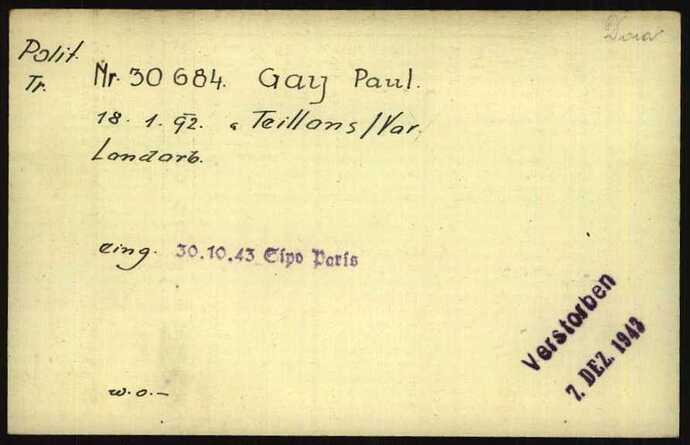 Dora
Polit.
Tr.
Nr. 30684. Gay Paul.
18. 1. 92. Teillans/Var.
Landarb.
eing. 30.10.43 Sipo Paris
Verstorben
7. DEZ. 1943
w.o.–